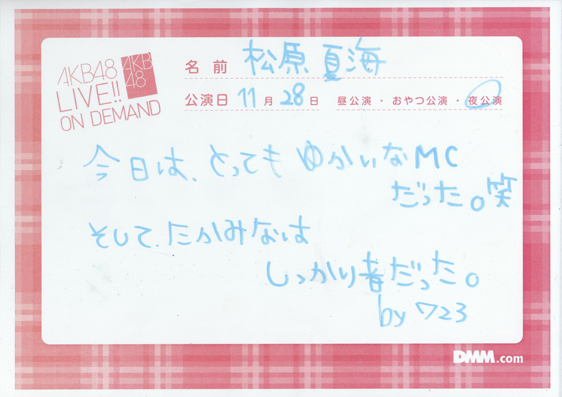 AKB48
LIVE!!
ON DEMAND
AKB
48
名前 松原夏海
公演日 11月28日 昼公演・おやつ公演・夜公演
今日は、とってもゆかいなMC
だった。笑
そして、たかみなは
しっかり者だった。
by 723
DMM.com